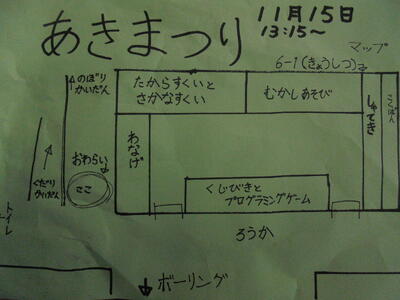 あきまつり
11月15日
13:15～
マップ
6-1(きょうしつ)
のぼり
かいだん
たからすくいと
さかなすくい
むかしあそび
しゃてき
こくばん
わなげ
おわらい
ここ
くだり
かいだん
トイレ
くじびきと
プログラミングゲーム
ろうか
ボーリング